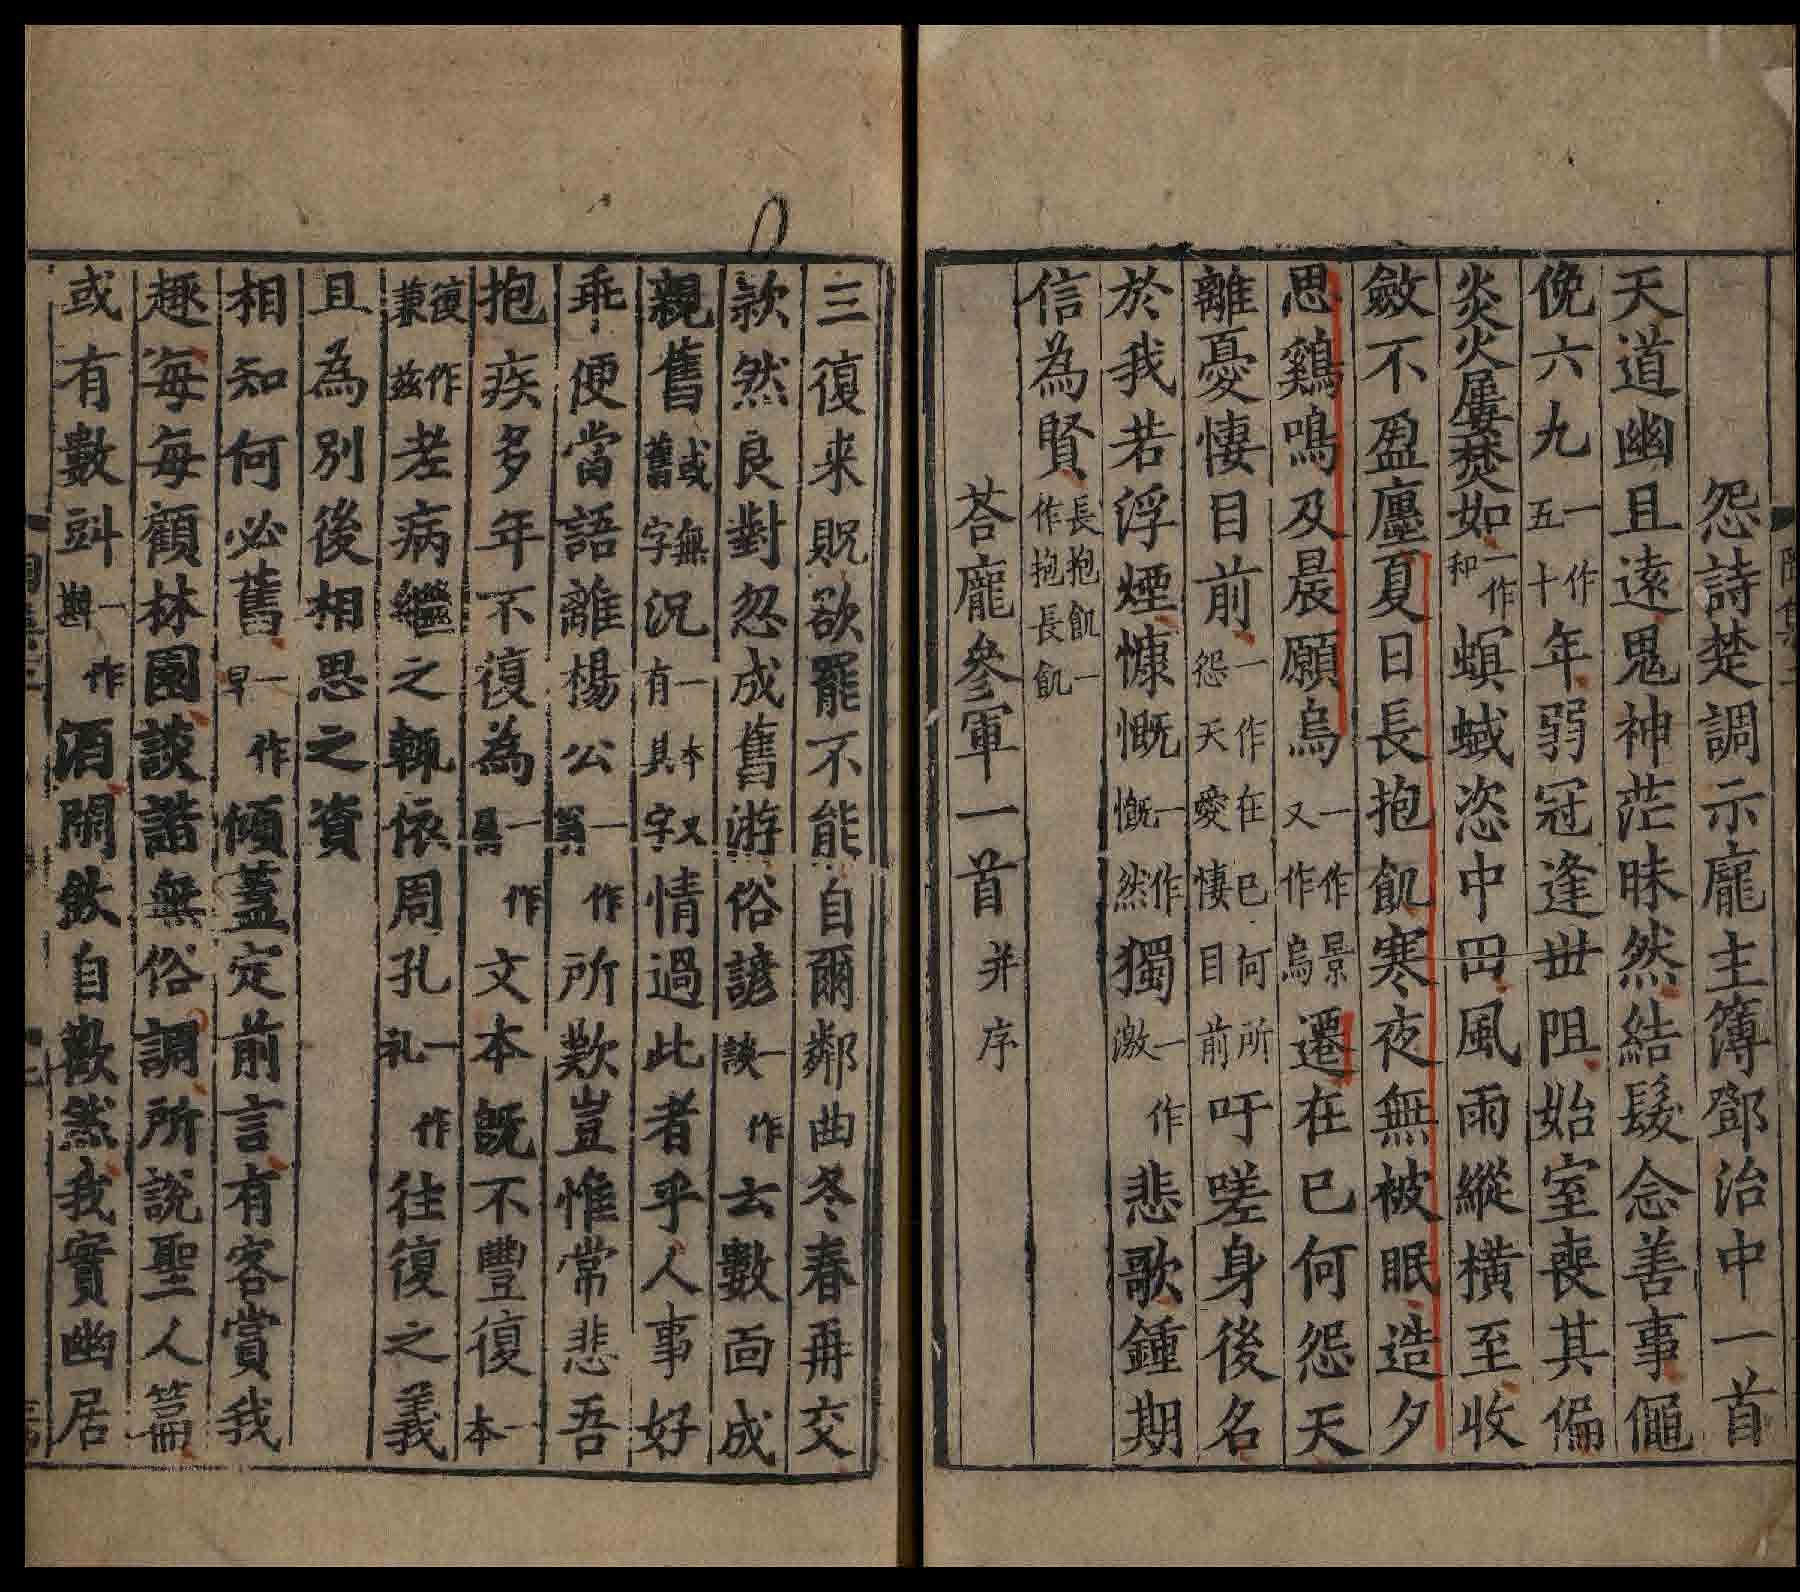 怨詩楚調示龐主簿鄧治中一首
天道幽且遠鬼神茫昧然結髮念善事僶
俛六九一作五十年弱冠逢世阻始室喪其偏
炎火屢焚如一作和螟蜮恣中田風雨縱橫至收
斂不盈廛夏日長抱飢寒夜無被眠造夕
思鷄鳴及晨願烏一作景又作烏遷在已何怨天
離憂悽目前一作在已何所怨天愛悽目前吁嗟身後名
於我若浮煙慷慨一作慨然獨一作激悲歌鍾期
信為賢長抱飢一作抱長飢
荅龐參軍一首并序
三復来貺欲罷不能自爾鄰曲冬春再交
欵然良對忽成舊游俗諺一作談云數面成
親舊或無舊字況一本有其字又情過此者乎人事好
乖便當語離楊公一作翁所歎豈惟常悲吾
抱疾多年不復為一作文本既不豐復一本
復作兼茲老病繼之輒依周孔一作礼往復之義
且為別後相思之資
相知何必舊一作早傾蓋定前言有客賞我
趣每每顧林園談諧無俗調所說聖人篇
或有數㪷一作斟酒閒飲自歡然我實幽居